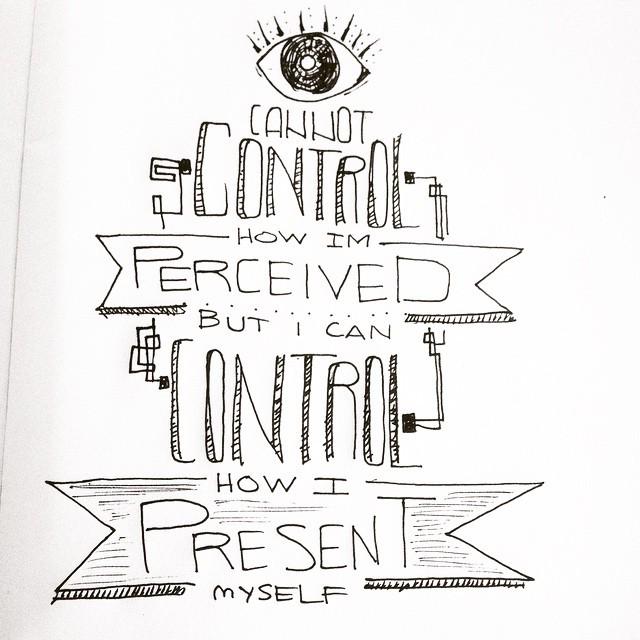 CANNOT
CONTROL
HOW IM
PERCEIVED
BUT I CAN
CONTROL
HOW I
PRESENT
MYSELF